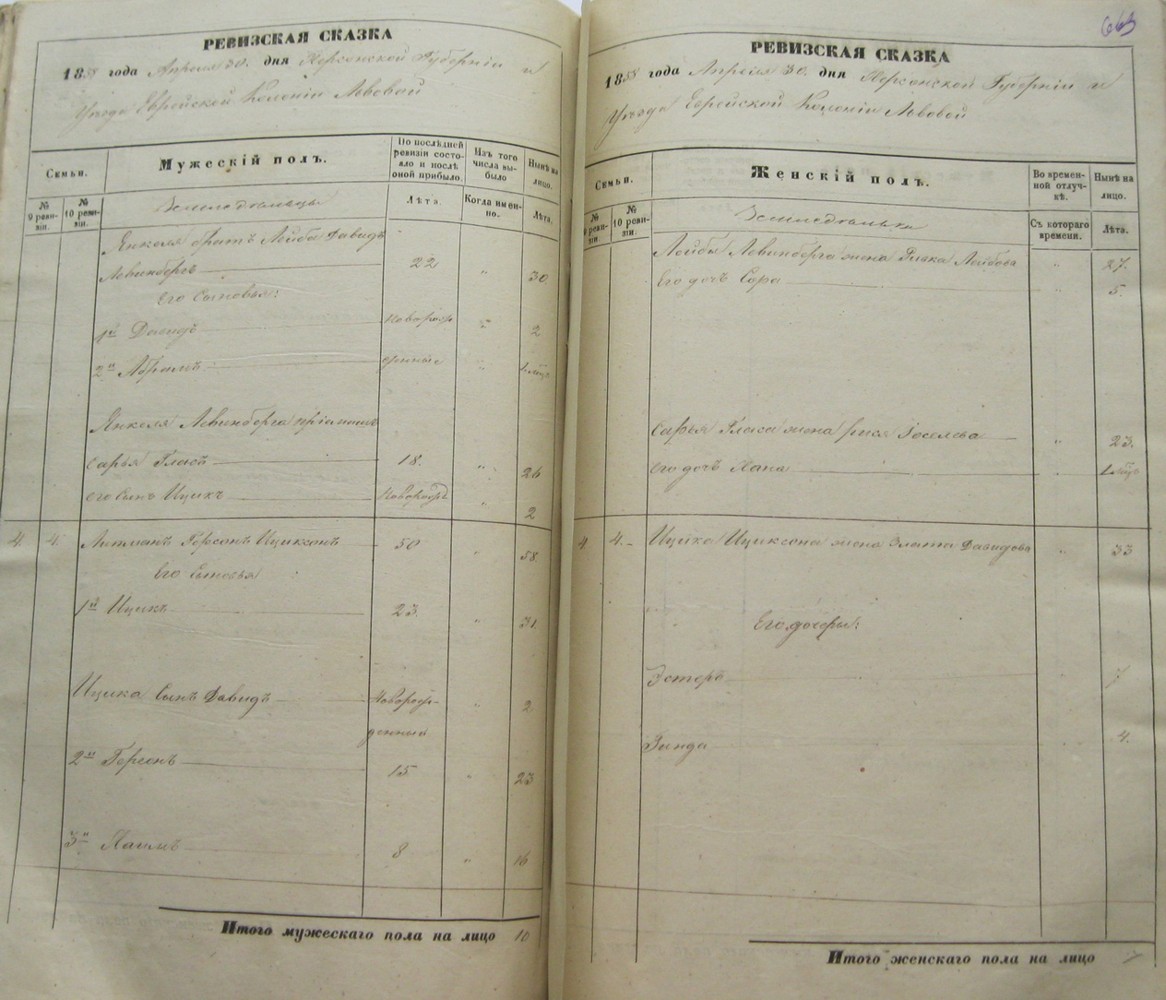 РЕВИЗСКАЯ СКАЗКА
1858 года Апреля 30. дня Херсонской Губерніи и
Уезда Еврейской Колоніи Львовой
Семьи.
Мужескій полъ.
По послѣдней ревизіи состояло и послѣ оной прибыло.
Изъ того числа выбыло
Нынѣ на лицо.
№ 9 ревизіи.
№ 10 ревизіи.
Лѣта.
Когда именно.
Лѣта.
Янкеля братъ Лейба Давидъ
Левинбергъ 22 " 30
Его Сыновья:
1й Давидъ Новорож 2
2й Абрамъ денные "
Янкеля Левинберга пріемышъ
Сарья Гласъ 18. " 26
его Сынъ Ицикъ Новорожд " 2
4. 4. Литманъ Герсонъ Ициксонъ 50 " 58
Его Сыновья
1й Ицикъ 23. " 31.
Ицика Сынъ Давидъ Новорож- " 2
денный
2й Герсонъ 15 " 23
3й 8 " 16
Итого мужескаго пола на лицо 10
663
РЕВИЗСКАЯ СКАЗКА
1858 года Апреля 30. дня Херсонской Губерніи и
Уезда Еврейской Колоніи Львовой
Семьи.
Женскій полъ.
Во временной отлучкѣ.
Нынѣ на лицо.
№ 9 ревизіи.
№ 10 ревизіи.
Съ котораго времени.
Лѣта.
Лейбы Левинберга жена Ривка Лейбова " 27.
Его дочь Сора " 5.
Сарья Гласа жена Іоселева " 23.
его дочь Хана
4 4. Ицика Ициксона жена Злата Давидова " 33
Его дочери:
Эстеръ 7.
Зинда 4.
Итого женскаго пола на лицо